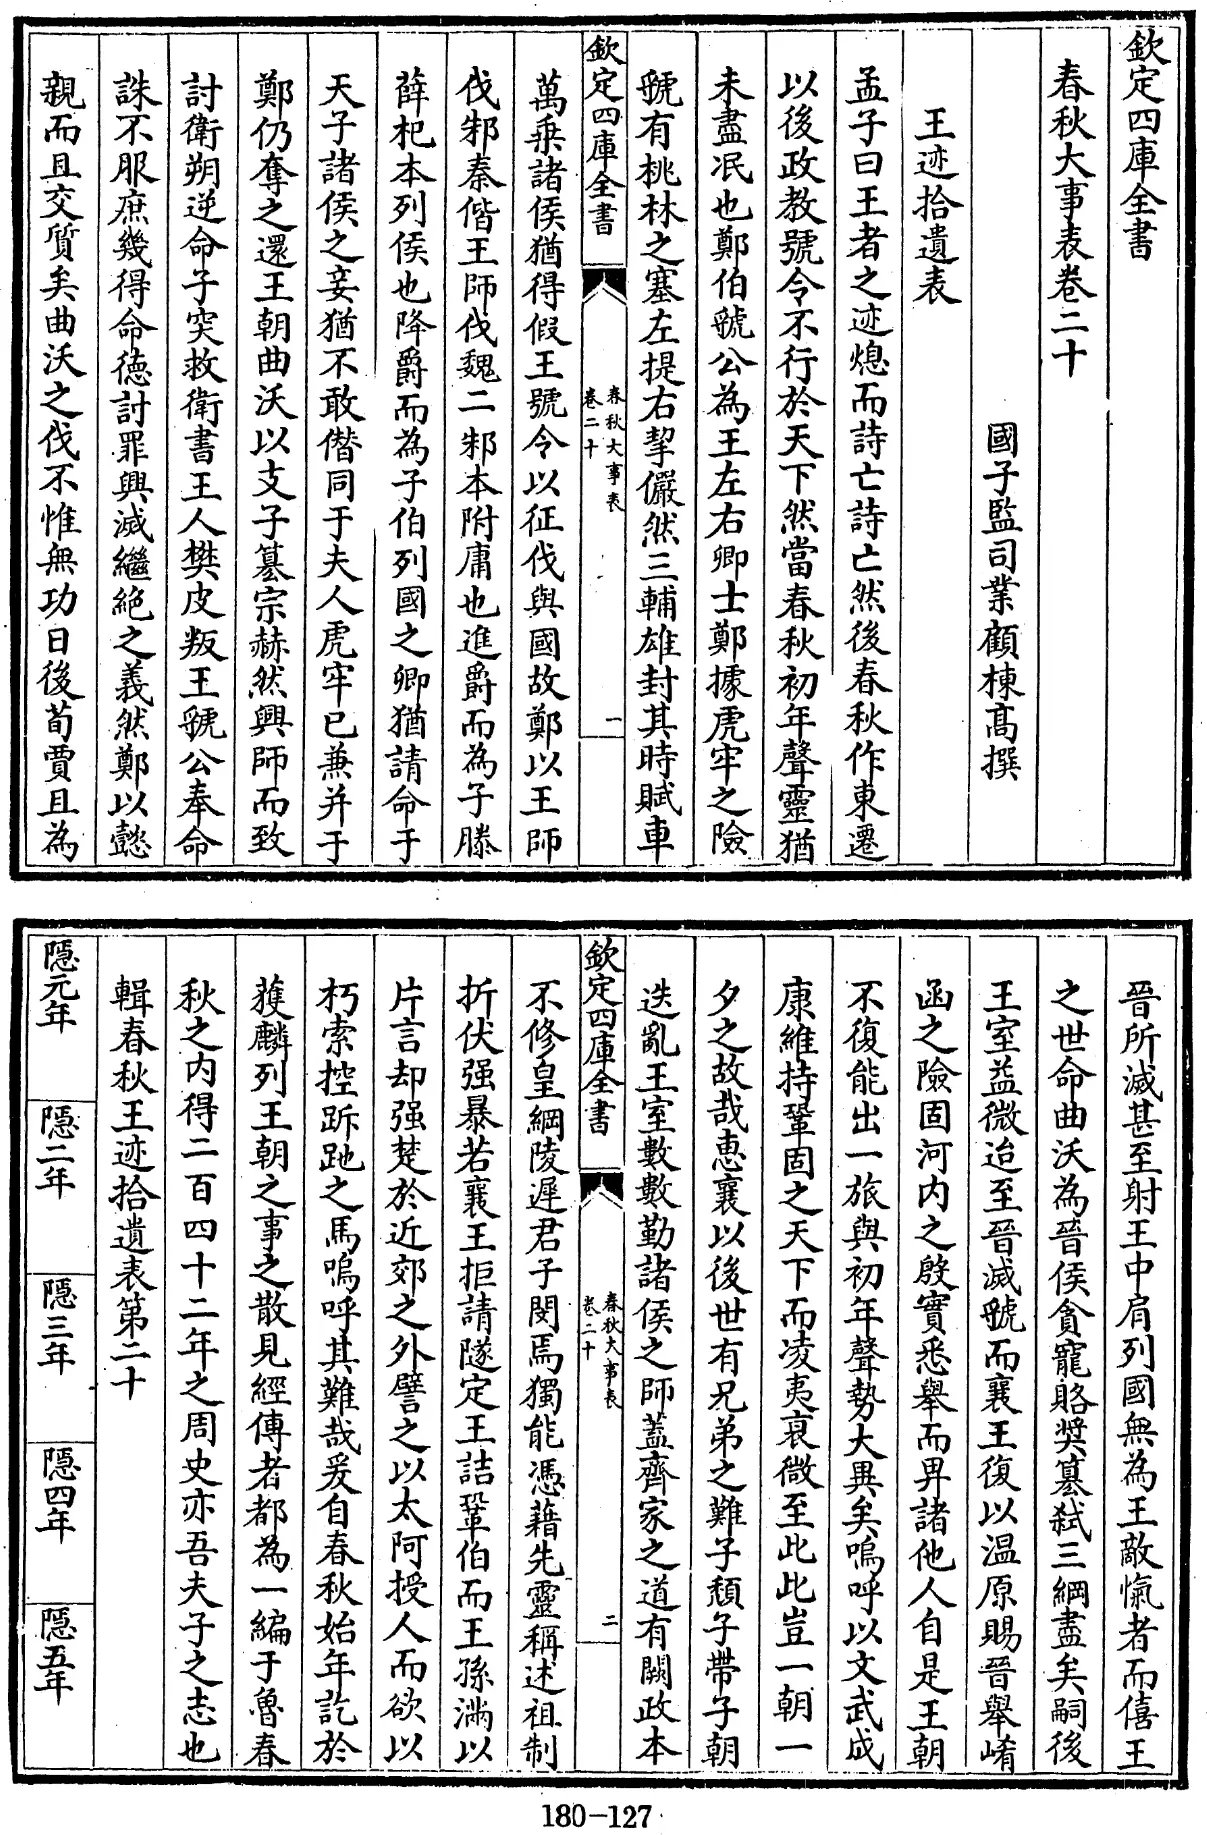 欽定四庫全書
春秋大事表卷二十
國子監司業顧棟高撰
王迹拾遺表
孟子曰王者之迹熄而詩亡詩亡然後春秋作東遷
以後政教號令不行於天下然當春秋初年聲靈猶
未盡冺也鄭伯虢公為王左右卿士鄭據虎牢之險
虢有桃林之塞左提右挈儼然三輔雄封其時賦車
欽定四庫全書
春秋大事表
卷二十
一
萬乘諸侯猶得假王號令以征伐與國故鄭以王師
伐邾秦偕王師伐魏二邾本附庸也進爵而為子滕
薛杞本列侯也降爵而為子伯列國之卿猶請命于
天子諸侯之妾猶不敢僭同于夫人虎牢已兼并于
鄭仍奪之還王朝曲沃以支子簒宗赫然興師而致
討衛朔逆命子突救衛書王人樊皮叛王虢公奉命
誅不服庶幾得命德討罪興滅繼絶之義然鄭以懿
親而且交質矣曲沃之伐不惟無功日後荀賈且為
晉所滅甚至射王中肩列國無為王敵愾者而僖王
之世命曲沃為晉侯貪寵賂奬簒弒三綱盡矣嗣後
王室益微迨至晉滅虢而襄王復以温原賜晉舉崤
函之險固河内之殷實悉舉而畀諸他人自是王朝
不復能出一旅與初年聲勢大異矣嗚呼以文武成
康維持鞏固之天下而凌夷衰微至此此豈一朝一
夕之故哉惠襄以後世有兄弟之難子頽子帶子朝
迭亂王室數數勤諸侯之師蓋齊家之道有闕政本
欽定四庫全書
春秋大事表
卷二十
二
不修皇綱陵遲君子閔焉獨能憑藉先靈稱述祖制
折伏强暴若襄王拒請隧定王詰鞏伯而王孫滿以
片言却强楚於近郊之外譬之以太阿授人而欲以
朽索控跅跎之馬嗚呼其難哉爰自春秋始年訖於
獲麟列王朝之事之散見經傳者都為一編于魯春
秋之内得二百四十二年之周史亦吾夫子之志也
輯春秋王迹拾遺表第二十
隱元年
隱二年
隱三年
隱四年
隱五年
180-127